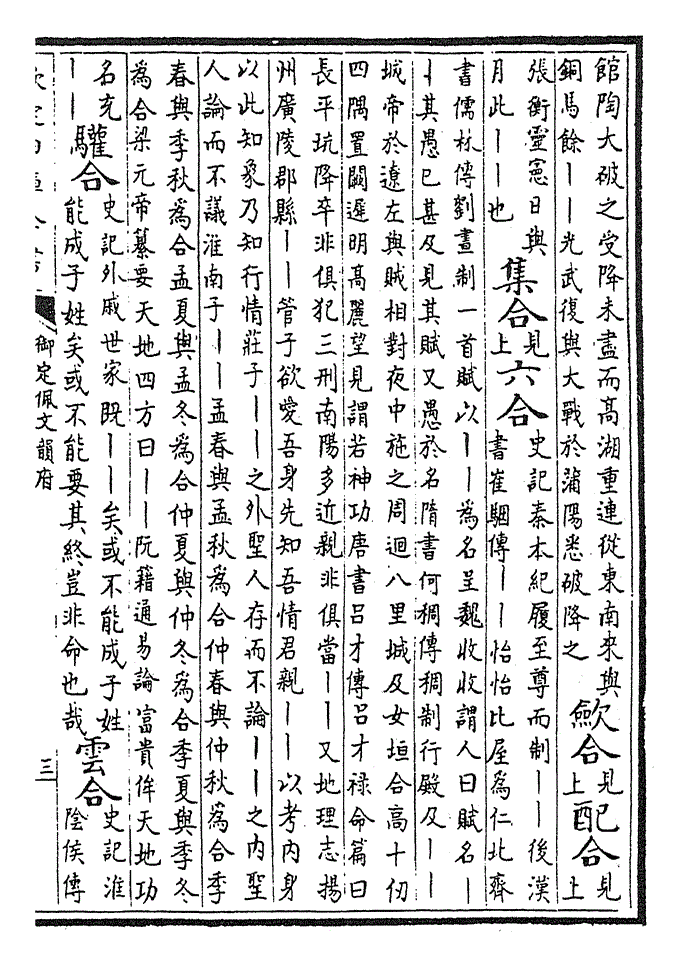 館陶大破之受降未盡而髙湖重連從東南來與
銅馬餘丨丨光武復與大戰於蒲陽悉破降之
歛合
見
上
配合
見
上
張衡靈憲日與
月此丨丨也
集合
見
上
六合
史記秦本紀履至尊而制丨丨後漢
書崔駰傳丨丨怡怡比屋為仁北齊
書儒林傳劉晝制一首賦以丨丨為名呈魏收收謂人曰賦名丨
丨其愚已甚及見其賦又愚於名隋書何稠傳稠制行殿及丨丨
城帝於遼左與賊相對夜中施之周迴八里城及女垣合高十仞
四隅置闕遲明髙麗望見謂若神功唐書呂才傳呂才祿命篇曰
長平坑降卒非俱犯三刑南陽多近親非俱當丨丨又地理志揚
州廣陵郡縣丨丨管子欲愛吾身先知吾情君親丨丨以考内身
以此知象乃知行情莊子丨丨之外聖人存而不論丨丨之内聖
人論而不議淮南子丨丨孟春與孟秋為合仲春與仲秋為合季
春與季秋為合孟夏與孟冬為合仲夏與仲冬為合季夏與季冬
為合梁元帝纂要天地四方曰丨丨阮籍通易論富貴侔天地功
名充
丨丨
驩合
史記外戚世家既丨丨矣或不能成子姓
能成子姓矣或不能要其終豈非命也哉
雲合
史記淮
陰侯傳
御定佩文韻府
三